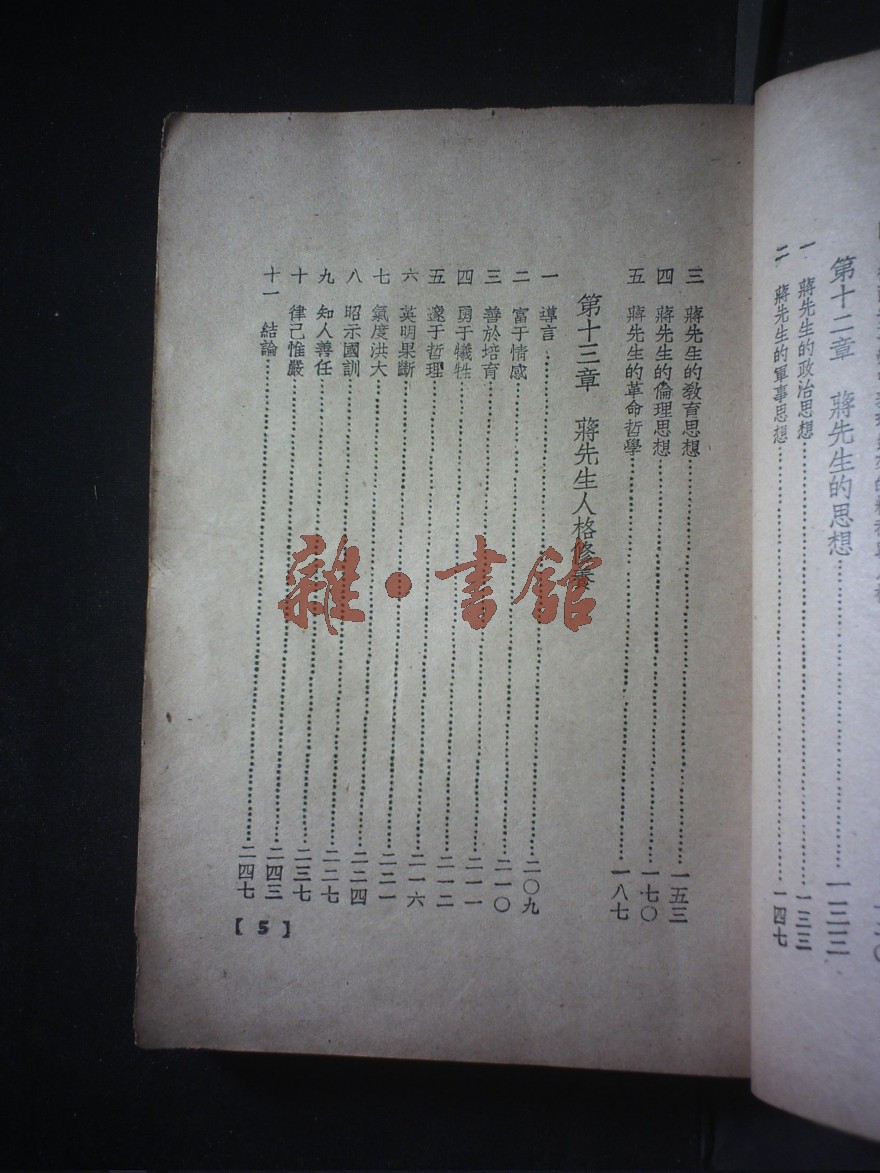 第十二章　蔣先生的思想……一三三
一　蔣先生的政治思想……一三三
二　蔣先生的軍事思想……一四七
三　蔣先生的教育思想……一五三
四　蔣先生的倫理思想……一七〇
五　蔣先生的革命哲學……一八七
第十三章　蔣先生人格修養
一　導言……二〇九
二　富于情感……二一〇
三　善於培育……二一一
四　勇于犧牲……二一二
五　邃于哲理……二一六
六　英明果斷……二二一
七　氣度洪大……二二四
八　昭示國訓……二二七
九　知人善任……二三七
十　律己惟嚴……二四三
十一　結論……二四七
【5】
雜·書館